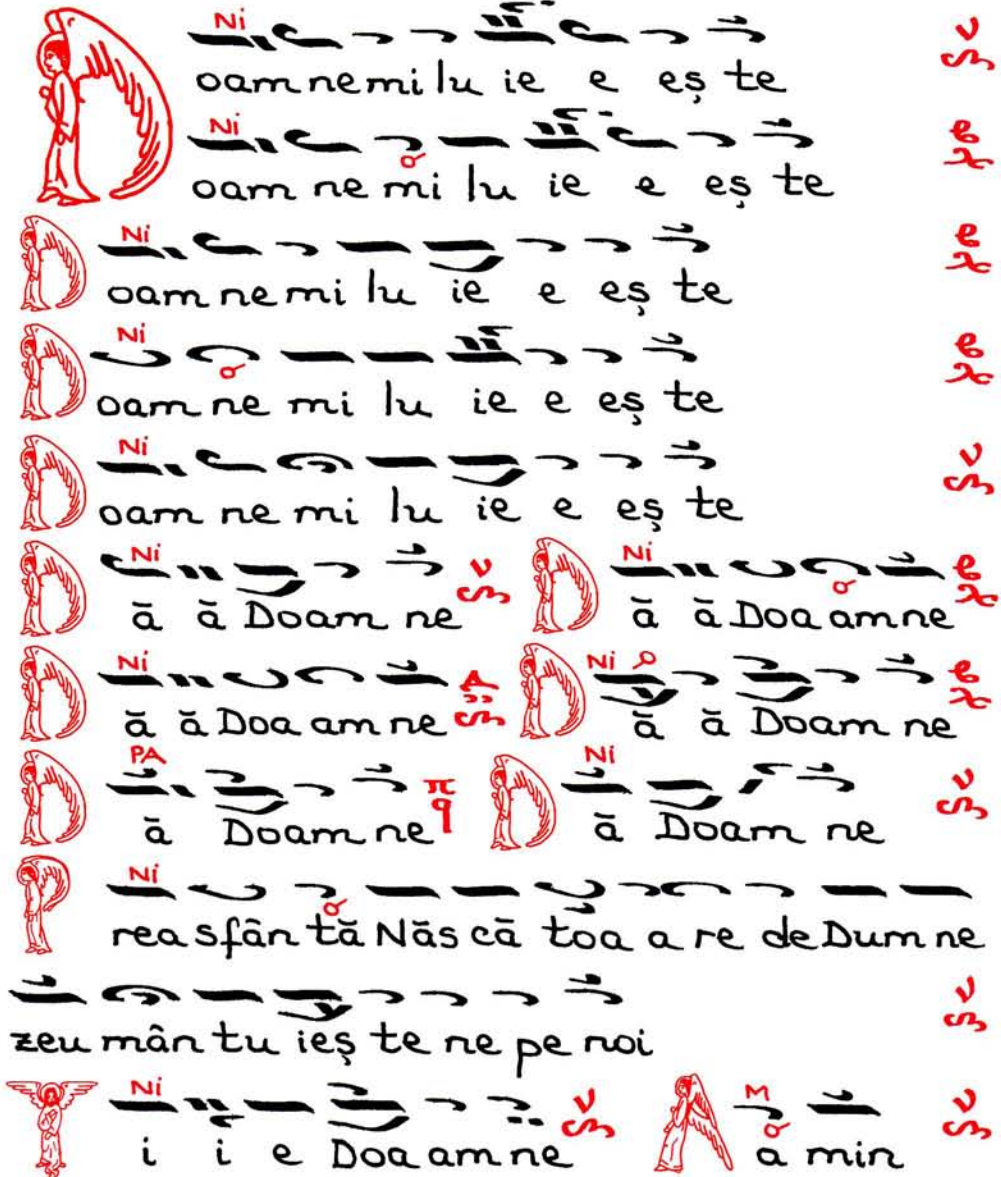 Ni
Doam ne mi lu ie e eș te
Ni
Doam ne mi lu ie e eș te
Ni
Doam ne mi lu ie e eș te
Ni
Doam ne mi lu ie e eș te
Ni
Doam ne mi lu ie e eș te
Ni Ni
D ă ă Doam ne D ă ă Doa am ne
Ni Ni
D ă ă Doa am ne D ă ă Doam ne
PA Ni
D ă Doam ne D ă Doam ne
Ni
Prea sfân tă Năs că toa a re de Dum ne
zeu mân tu ieș te ne pe noi
Ni M
Ț i i e Doa am ne A a min